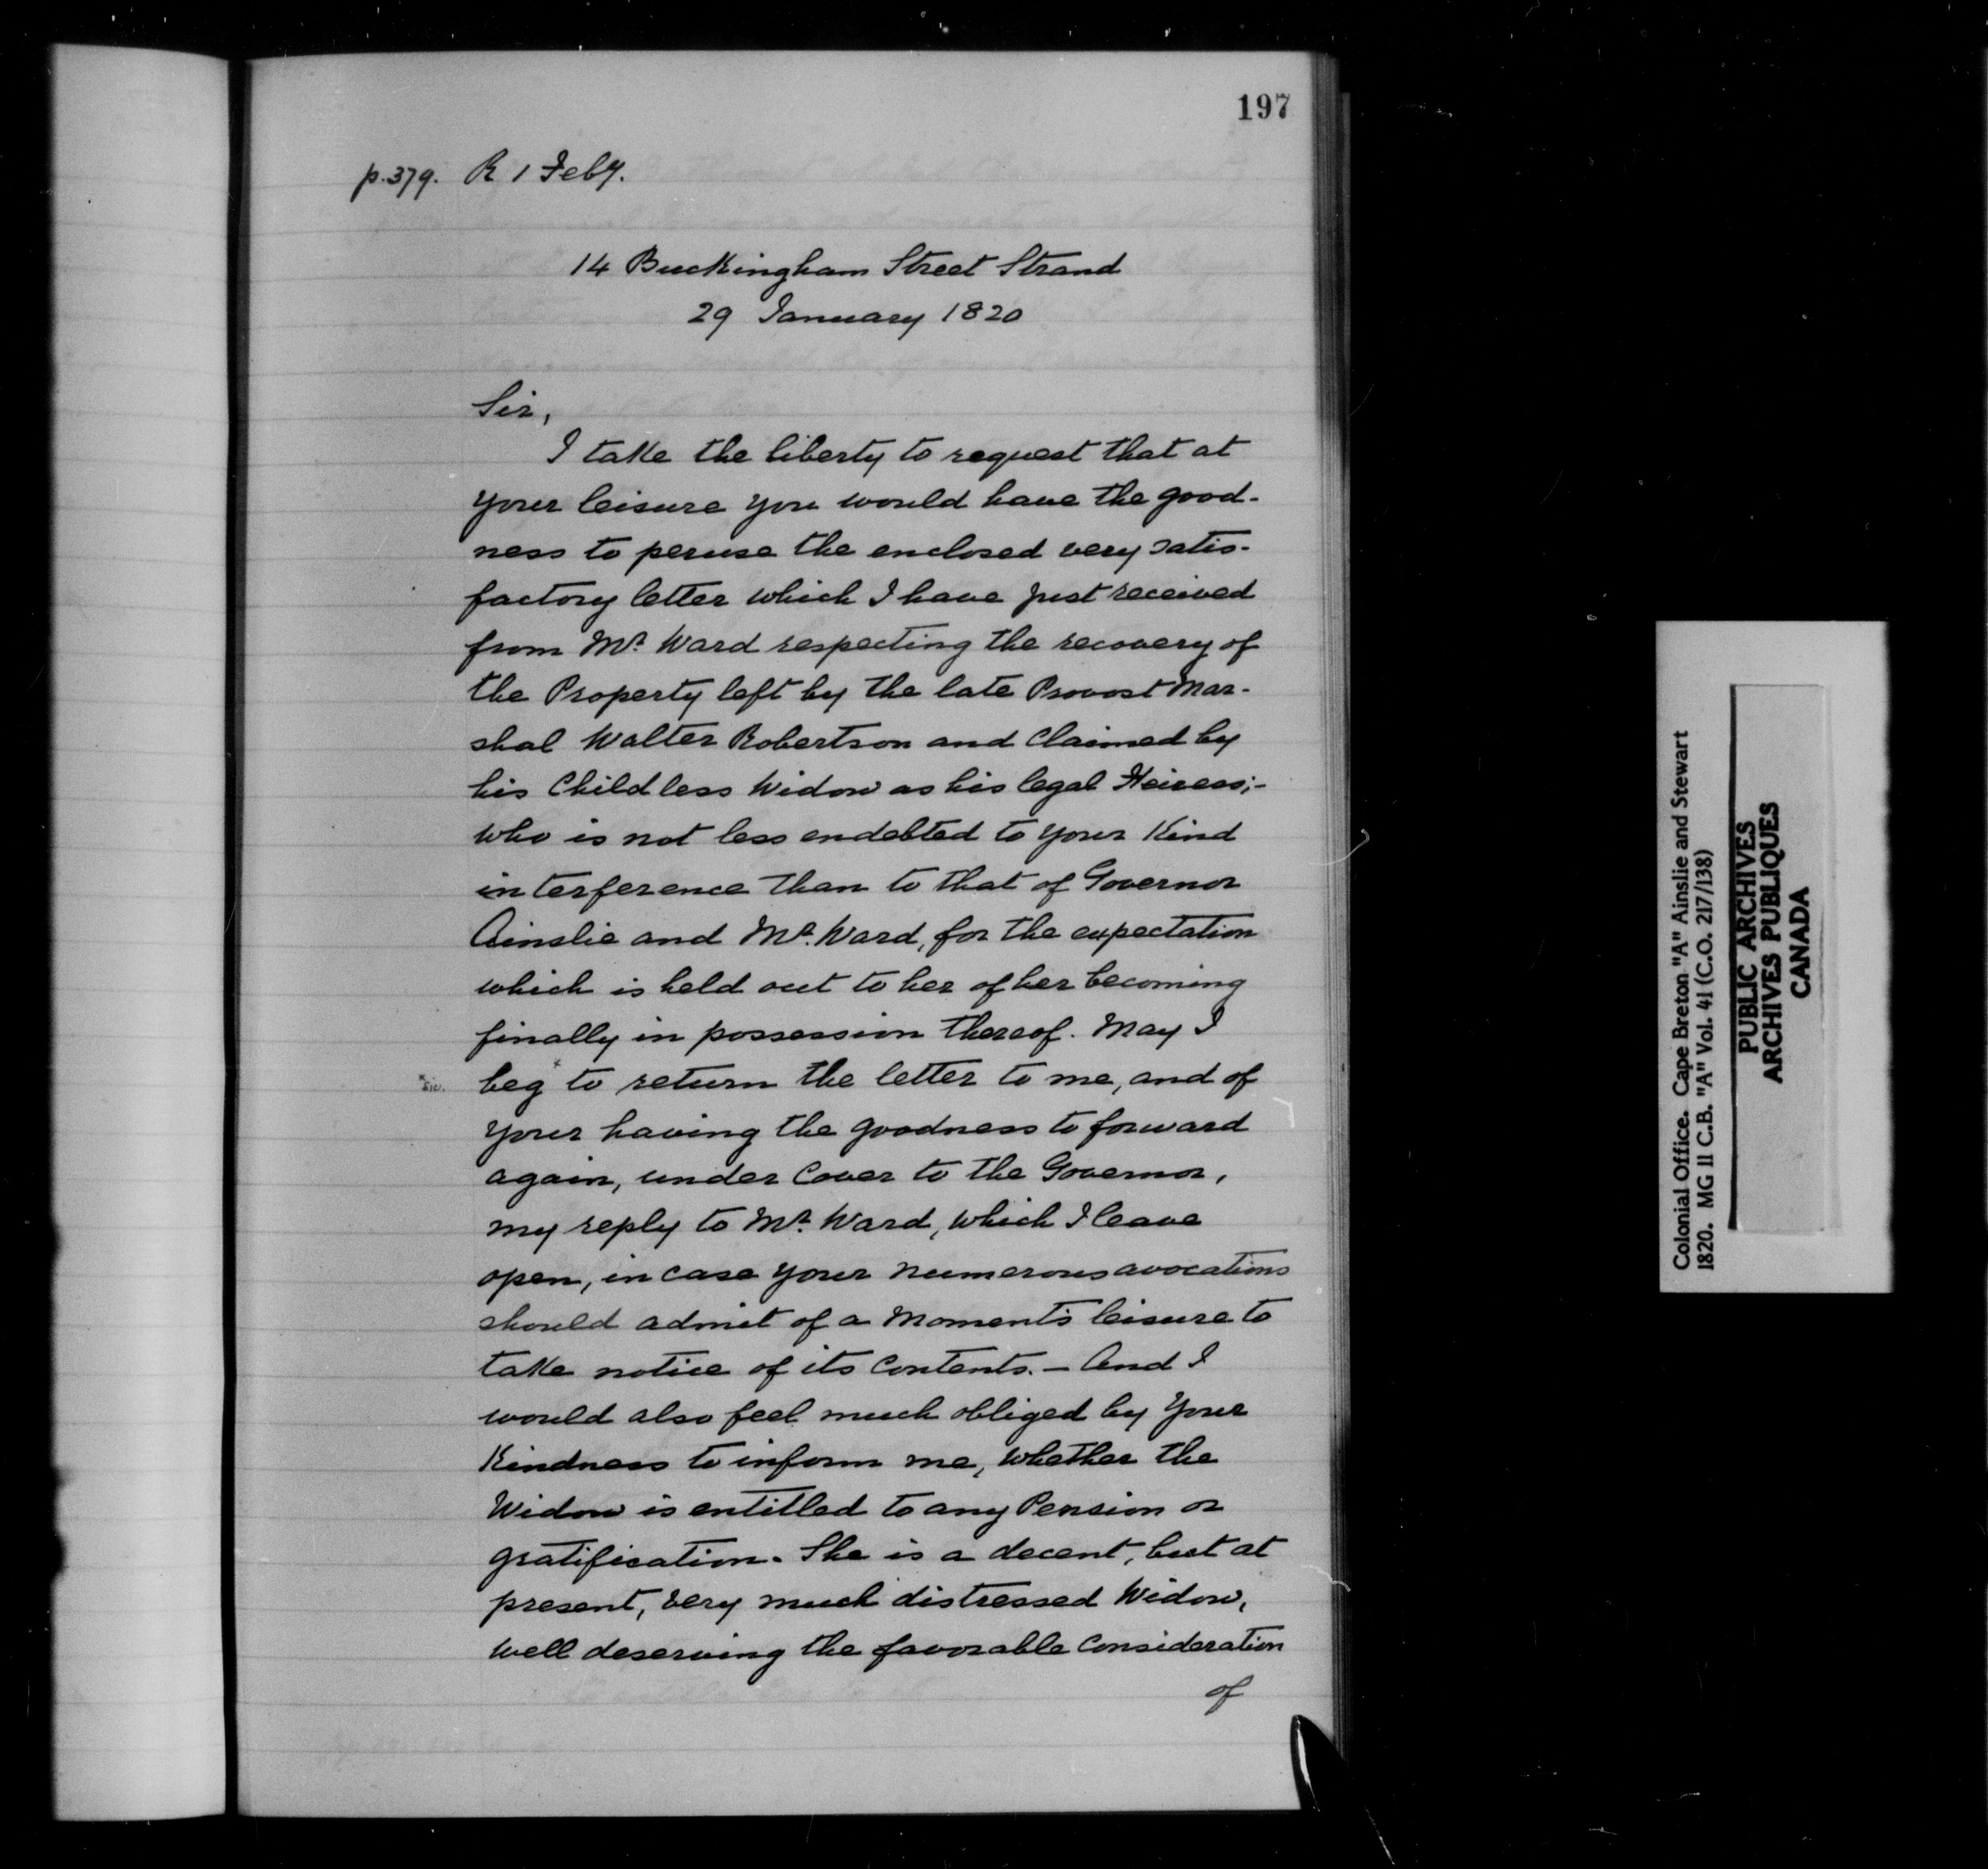 197
p.379. R 1 Feby.
14 Buckingham Street Strand
29 January 1820
Sir,
I take the liberty to request that at
your leisure you would have the good-
ness to peruse the enclosed very satis-
factory letter which I have just received
from Mr. Ward respecting the recovery of
the Property left by the late Provost Mar-
shal Walter Robertson and claimed by
his Childless Widow as his legal Heiress;-
who is not less endebted to your Kind
interference than to that of Governor
Ainslie and Mr. Ward, for the expectation
which is held out to her of her becoming
finally in possession thereof. May I
*sic. beg* to return the letter to me, and of
your having the goodness to forward
again, under Cover to the Governor,
my reply to Mr. Ward, which I leave
open, in case your numerous avocations
should admit of a Moment's leisure to
take notice of its Contents. - And I
would also feel much obliged by Your
Kindness to inform me, whether the
Widow is entitled to any Pension or
gratification. She is a decent, but at
present, very much distressed Widow,
well deserving the favorable Consideration
of
Colonial Office. Cape Breton "A" Ainslie and Stewart
1820. MG 11 C.B. "A" Vol. 41 (C.O. 217/138)
PUBLIC ARCHIVES
ARCHIVES PUBLIQUES
CANADA